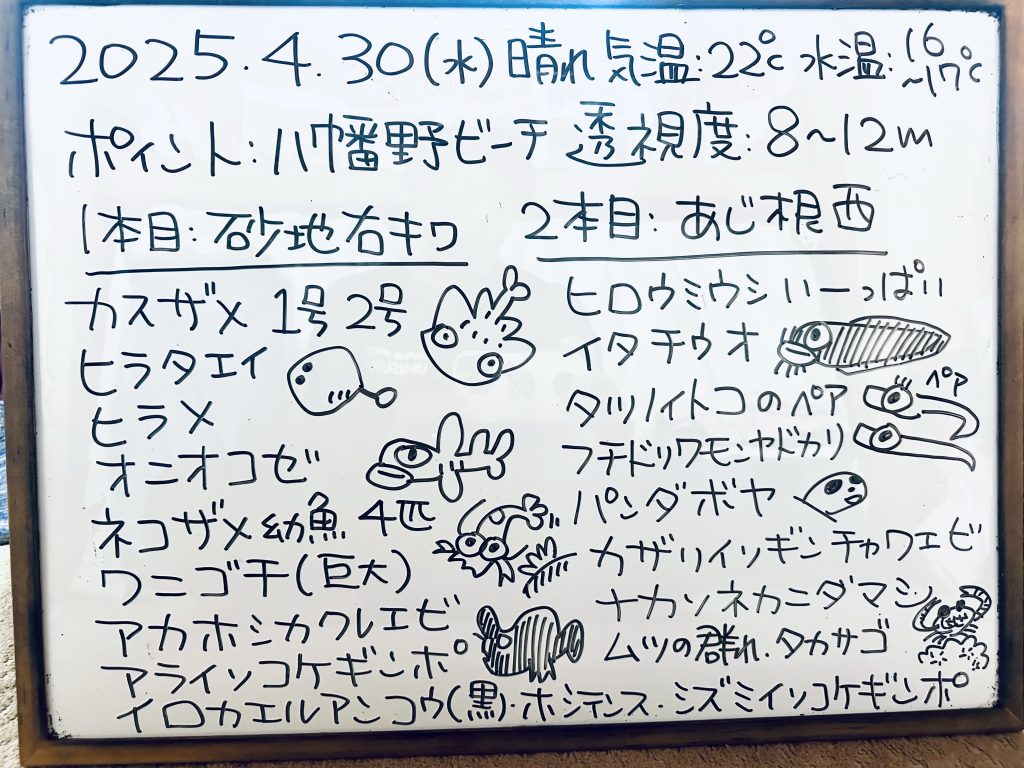 2025.4.30(水) 晴れ 気温:22℃ 水温:16~17℃
ポイント:八幡野ビーチ 透視度:8~12m
1本目:砂地右キワ
カスザメ 1号 2号
ヒラタエイ
ヒラメ
オニオコゼ
ネコザメ幼魚 4匹
ワニゴチ(巨大)
アカホシカクレエビ
アライソコケギンポ
2本目:あじ根西
ヒロウミウシいーっぱい
イタチウオ
タツノイトコのペア
ペア
フチドリワモンヤドカリ
パンダボヤ
カザリイソギンチャクエビ
ナカソネカニダマシ
ムツの群れ.タカサゴ
イロカエルアンコウ(黒)・ホシテンス・ミズミイソコケギンポ